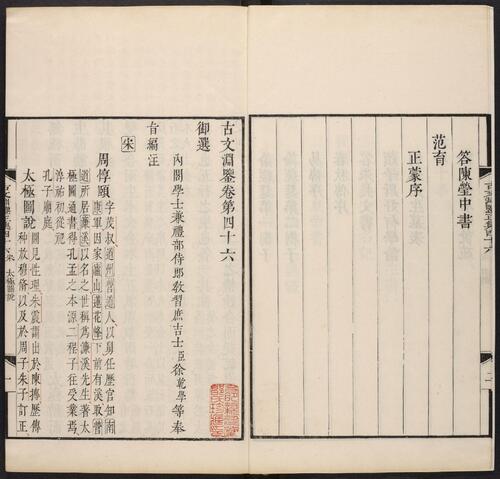 答陳瑩中書
范育
正蒙序
古文淵鑒卷第四十六
御選
內閣學士兼禮部侍郎教習庶吉士臣徐乾學等奉
旨編注
宋
周惇頤 字茂叔道州營道人以舅任歷官知南
康軍因家廬山蓮花峰下前有溪取營
道所居濂溪以名之世稱為濂溪先生著太
極圖通書得孔孟之本源二程子往受業焉
淳祐初從祀
孔子廟庭
太極圖說 圖見性理朱震謂出於陳摶歷傳
种放穆脩以及於周子朱子訂正
太極圖說
一